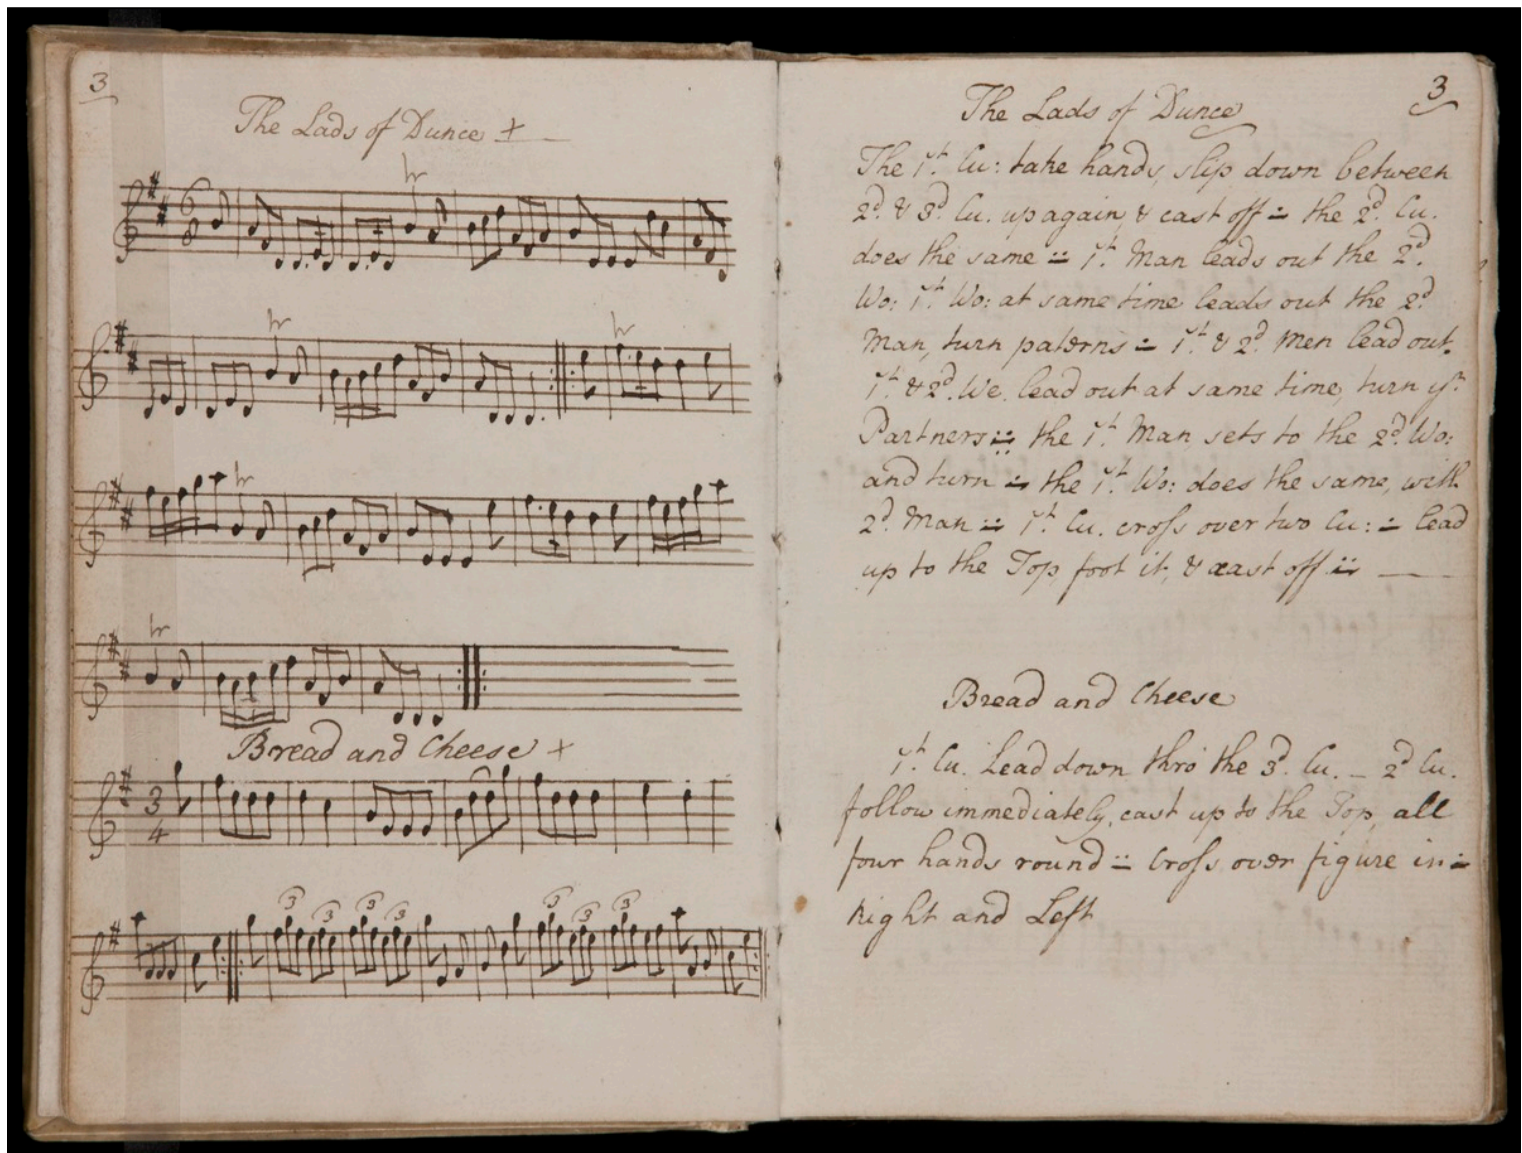 3
The Lads of Dunce +
6
8
tr
tr
tr
tr
tr
Bread and Cheese +
3
4
3 3 3 3 3 3 3
3
The Lads of Dunce
The 1st. Cu: take hands, slip down between
2d. & 3d. Cu. up again, & cast off ∸ the 2d. Cu.
does the same ∺ 1st. Man leads out the 2d.
Wo: 1st. Wo: at same time leads out the 2d.
Man, turn paterns ∸ 1st. & 2d. Men lead out.
1st. & 2d. We. lead out at same time, turn yr.
Partners ∺ the 1st. Man sets to the 2d. Wo:
and turn ∸ the 1st. Wo: does the same, with
2d. Man ∺ 1st. Cu. cross over two Cu: ∸ lead
up to the Top, foot it, & cast off ∺ —
Bread and Cheese
1st. Cu. Lead down thro the 3d. Cu. – 2d Cu.
follow immediately, cast up to the Top, all
four hands round ∺ Cross over figure in ∸
Right and Left